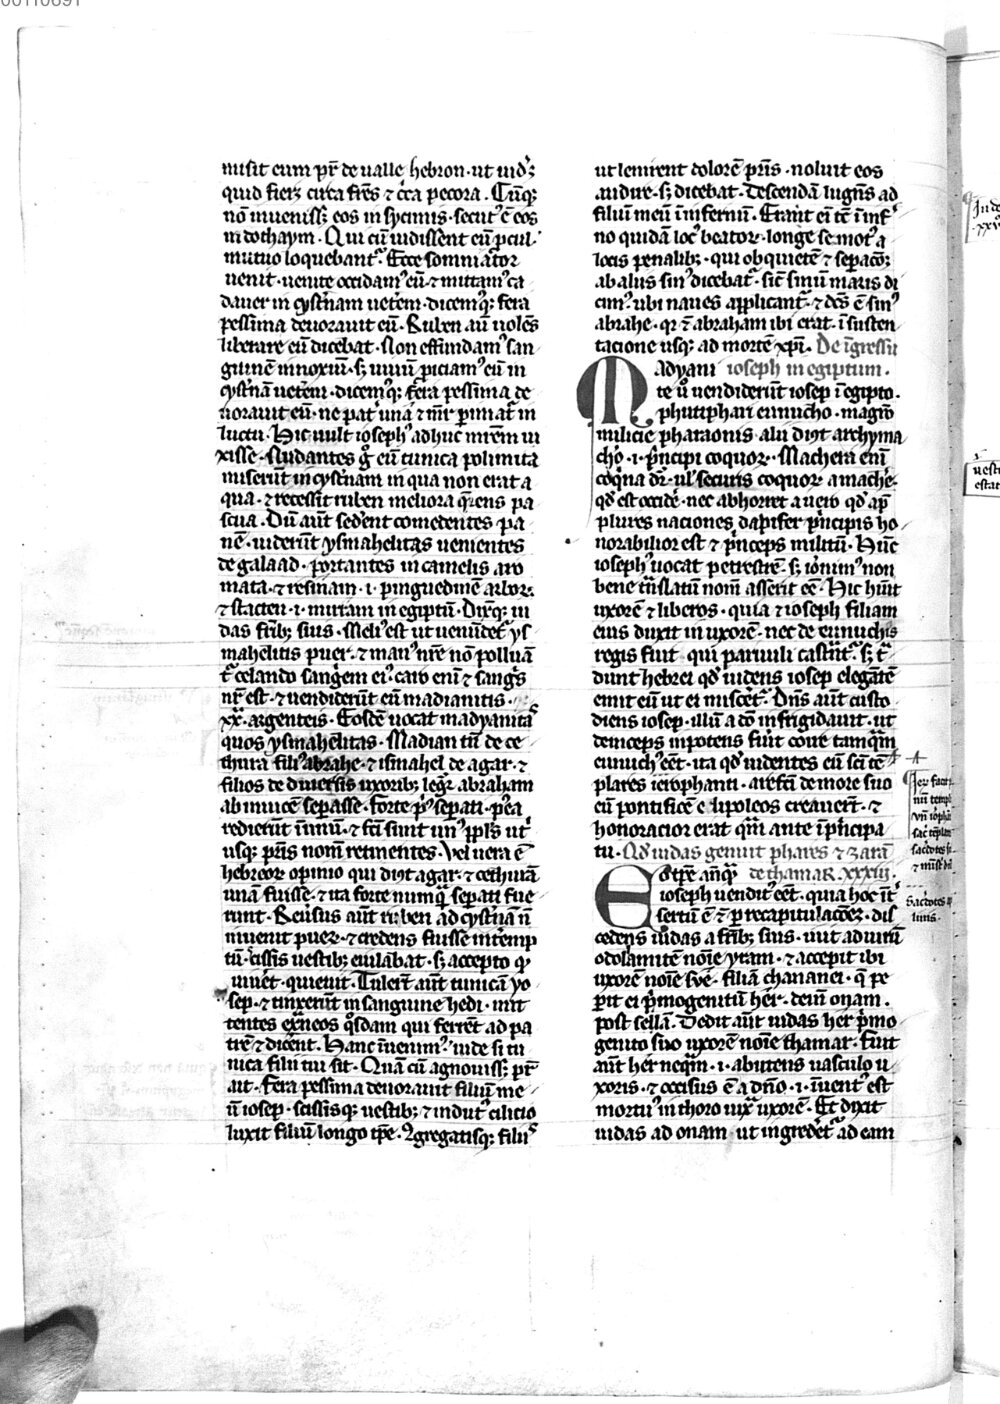 misit eum pr̄ de ualle hebron · ut uidꝫ
quid fierꝫ circa frēs ⁊ cir̄ca pecora . Cūqꝫ
nō inuenissꝫ eos in sycimis · secut᷒ ē eos
in dothaym · Qui cū uidissent eū ꝓcul ·
mutuo loquebant᷑ · Ecce somniator
uenit · uenite occidam᷒ eū · ⁊ mittam᷒ ca
dauer in cyst̄nam uetēem · dicem᷒qꝫ fera
pessima deuorauit eū · Ruben aū uolēs
liberare eū dicebat · Non effundam᷒ san
guinē innoxiū · sꝫ uiuū ꝓiciam᷒ eū in
cyst̄nā uetēem · dicem᷒qꝫ · fera pessima de
uorauit eū · ne pat᷑ una ⁊ mr̄ ꝑimat᷑ in
luctu · Hic uult ioseph᷒ adhuc mr̄em ui
xisse · Nudantes gͦ eū tunica polimita
miserūt in cyst̄nam in qua non erat a
qua · ⁊ recessit ruben meliora q̄rens pa
scua · Dū aūt sedēent comedentes pa
nē · uiderūt ysmahelitas uenientes
de galaad · portantes in camelis aro
mata · ⁊ resinam · i · pinguedinē arborꝫ
⁊ stacten · i · mirram in egiptū · Dixꝫqꝫ iu
das fr̄ibꝫ suis · Meli᷒ est ut uenūdet᷑ ys
mahelitis puer · ⁊ man᷒ nr̄e nō polluā
t᷑ celando sangiēm ei᷒ · caro enī ⁊ sangͥs
nr̄ est · ⁊ uendiderūt eū madianitis ·
xx · argenteis · Eosdē uocat madyanitas
quos ysmahelitas · Madian tn̄ de ce
thura fili᷒ abrahe · ⁊ ismahel de agar · ⁊
filios de diuersis uxoribꝫ legr̄ abraham
ab inuicē seꝑasse · forte pͥ᷒ seꝑati · p᷒ea
redierūt in unū · ⁊ fc̄i sunt un᷒ ppl̄s utͥ
usqꝫ pr̄is nom̄ retinentes · Vel uera ē
hebreorꝫ opinio qui dn̄t agar · ⁊ cethurā
unā fuisse · ⁊ ita forte numqͣ seꝑati fue
runt · Reuersus aūt ruben ad cyst̄nā n̄
inuenit pueꝝ · ⁊ credens fuisse int̄emp
tū · scissis uestibꝫ eiulabat · sꝫ accepto qͩ
uiuet · quieuit · Tulerūt aūt tunicā yo
sep · ⁊ tinxerūt in sanguine hedi · mit
tentes ex̄neos qͦsdam qui ferrēt ad pa
trē ⁊ dicēent · Hanc īuenim᷒ · uide si tu
nica filii tui sit · Quā cū agnouissꝫ pr̄
ait · Fera pessima deuorauit filiū me
ū iosep · scissisqꝫ uestibꝫ ⁊ indut᷒ cilicio
luxit filiū longo tp̄e · ꝯgregatisqꝫ filiis
ut lenirent dolorē pr̄is · noluit eos
audire · sꝫ dicebat · Descendā lugēs ad
filiū meū ī infernū · Erant ei tc̄ ī inf᷒
no quidā loc᷒ beatorꝫ · longe semot᷒ a
locis penalibꝫ · qui ob quietē ⁊ seꝑacōꝫ
ab aliis sin᷒ dicebat᷑ · sic᷑ sinū maris di
cim᷒ · ubi naues applicant᷑ · ⁊ dc̄s ē sin᷒
abrahe · qꝛ ⁊ abraham ibi erat · ī susten
tacione usqꝫ ad mortē xp̄i · De īgressu
Madyani ioseph in egiptum ·
te u͛ uendiderūt iosep ī egipto ·
phutiphari eunucho · magrō
milicie pharaonis · alii dn̄t archyma
cho · i · pͥncipi coquorꝫ · Machera enī
coqͥna dr̄ · ul᷑ securis coquorꝫ a machē ·
qͩ est occidē · nec abhorret a uero qͩ ap̄
plures naciones dapifer pͥncipis ho
norabilior est ⁊ pͥnceps militū · Hūc
ioseph᷒ uocat petrefrē · sꝫ ieronim᷒ non
bene tn̄slatū nom̄ asserit eē · Hic hūit
uxorē ⁊ liberos · quia ⁊ ioseph filiam
eius duxit in uxorē · nec de eunuchis
regis fuit qui paruuli castnt᷑ · sꝫ t᷑
dunt hebrei qͩ uidens iosep elegātē
emit eū ut ei miscēet᷑ · Dn̄s aūt custo
diens iosep · illū a dō infrigidauit · ut
deinceps inpotens fūit coire tamqͣm
eunuch᷒ eēt · ita qͩ uidentes eū sci tē
plares ierophanti · arefcī de more suo
eū pontificē elipoleos creauerūt · ⁊
honoracior erat qͣm ante ī pͥncipa
tu · Qͩ iudas genuit phares ⁊ zarā
Eo tꝑe anqͣ de thamaR xxxiiij .
ioseph uendit᷒ eēt · quia hoc īt᷑
sertū ē · ⁊ ꝑ recapitulacōeꝫ · dis
cedens iudas a fr̄ibꝫ suis · uiuit ad uirū
odolamitē noīe yram · ⁊ accepit ibi
uxorē noīe sue · filiā chananei · q̄ pe
ꝑit ei pͥmogenitū her · dein onam ·
post sellā · Dedit aūt iudas her pͥmo
genito suo uxorē noīe thamar · Fuit
aūt her neqͣm · i · abutens uasculo u
xoris · ⁊ occisus ē a dn̄o · i · īuent᷒ est
mortu᷒ in thoro iuxͣ uxorē · Et dixit
iudas ad onam ut ingredēet᷑ ad eam